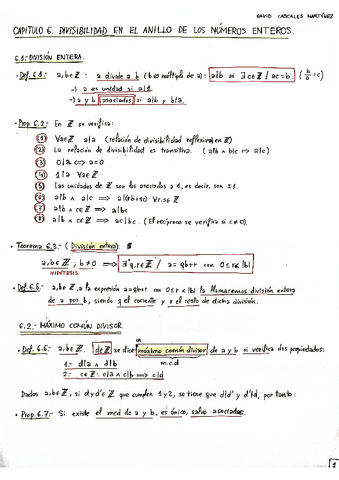 DAVID CASCALES MARTÍNEZ
CAPÍTULO 6. DIVISIBILIDAD EN EL ANILLO DE LOS NÚMEROS ENTEROS.
6.1.- DIVISIÓN ENTERA.
• Def. 6.1.- a,b∈ℤ : a divide a b (b es múltiplo de a): a|b si ∃ c∈ℤ / ac=b. (b/a = c)
-) a es unidad si a|1.
-) a y b asociados si a|b y b|a.
• Prop. 6.2.- En ℤ se verifica:
(1) ∀a∈ℤ a|a (relación de divisibilidad reflexiva en ℤ)
(2) La relación de divisibilidad es transitiva. (a|b ∧ b|c ⟹ a|c)
(3) 0|a ⟺ a=0
(4) 1|a ∀a∈ℤ
(5) Las unidades de ℤ son los asociados a 1, es decir, son ±1.
(6) a|b ∧ a|c ⟹ a|(br+sc) ∀r,s∈ℤ
(7) a|b ∧ c∈ℤ ⟹ a|bc
(8) a|b ∧ c∈ℤ ⟹ ac|bc. (El recíproco se verifica si c≠0).
• Teorema 6.3.- (División entera):
a,b∈ℤ ; b≠0 ⟹ ∃! q,r∈ℤ / a=qb+r con 0≤r<|b|
HIPÓTESIS
• Def. 6.5.- a,b∈ℤ, a la expresión a=qb+r con 0≤r<|b| la llamaremos división entera
de a por b, siendo q el cociente y r el resto de dicha división.
6.2.- MÁXIMO COMÚN DIVISOR.
• Def. 6.6.- a,b∈ℤ. d∈ℤ se dice un máximo común divisor de a y b si verifica dos propiedades:
1.- d|a ∧ d|b m.c.d
2.- c∈ℤ : c|a ∧ c|b ⟹ c|d
Dados a,b∈ℤ, si d y d'∈ℤ que cumplen 1 y 2, se tiene que d|d' y d'|d, por tanto:
• Prop. 6.7.- Si existe el mcd de a y b, es único, salvo asociados.
1